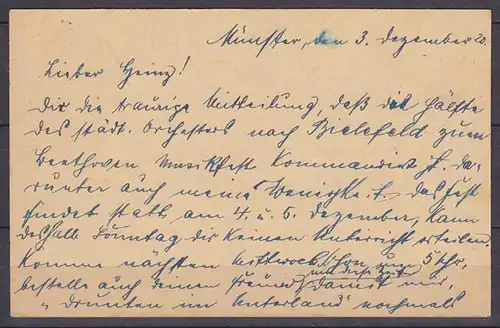 Münster, den 3. Dezember 20.
Lieber Heinz!
Dir die traurige Mitteilung, daß die Hälfte
des städt. Orchesters nach Bielefeld zum
Beethoven Musikfest kommandiert ist. da-
runter auch meine Das Fest
findet statt am 4. u. 5. Dezember, kann
deshalb Sonntag dir keinen Unterricht erteilen.
Komme nächsten Mittwoch schon zum 5 Uhr,
bestelle auch deinen Freund damit wir,
"drunten im Unterland" nochmals